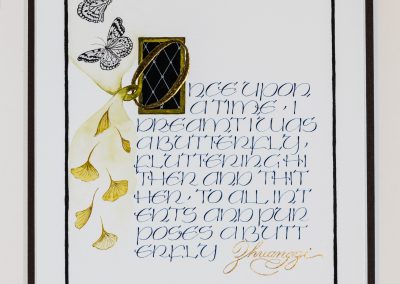 ONCE UPON
A TIME, I
DREAMT I WAS
A BUTTERFLY,
FLUTTERING HI
THER AND THIT
HER, TO ALL INT
ENTS AND PUR
POSES A BUTT
ERFLY Zhuangzi